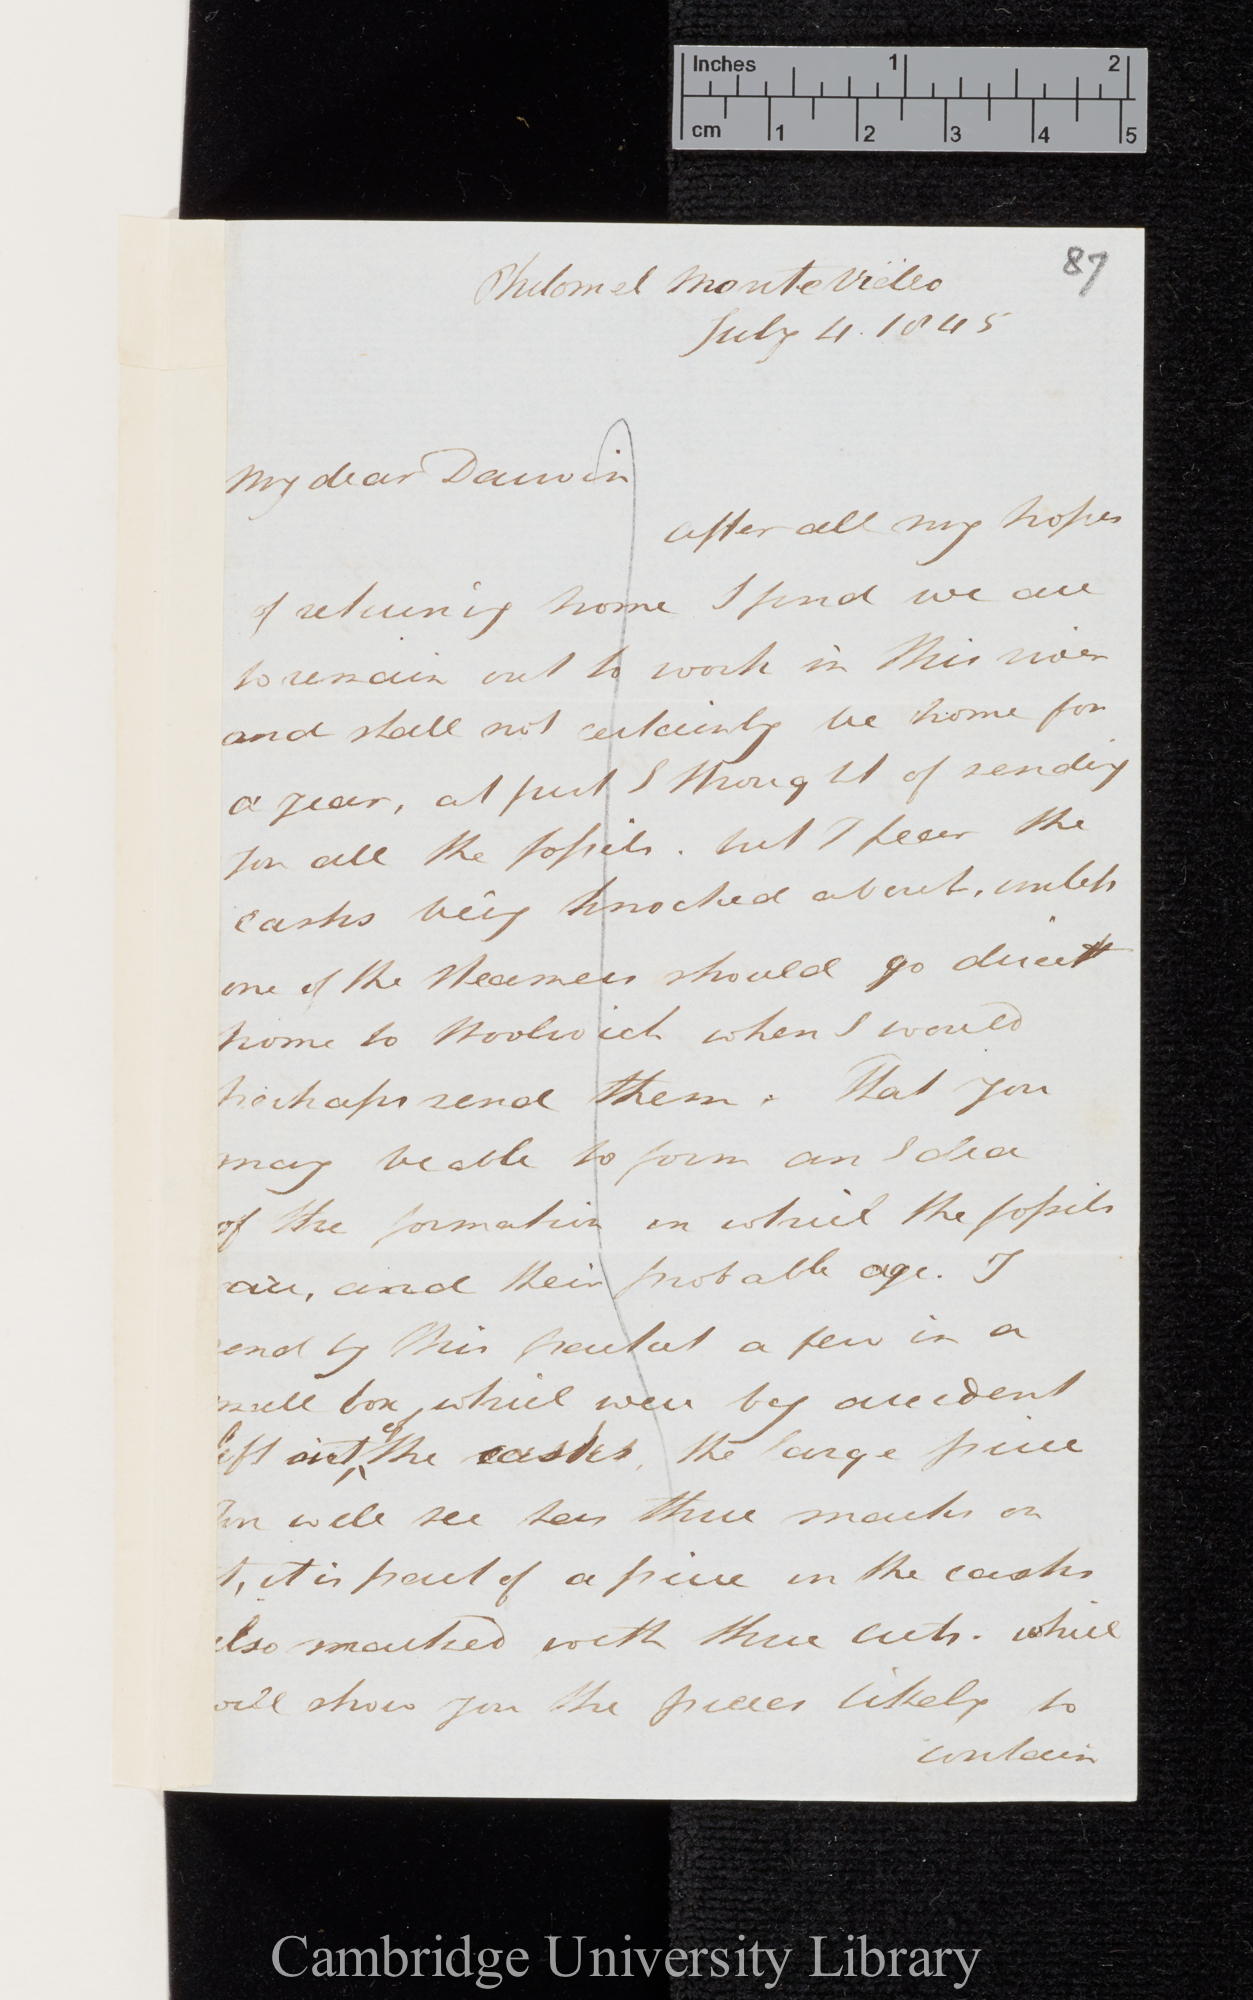 Inches 1 2
cm 1 2 3 4 5
87
Philomel Monte Video
July 4. 1845
My dear Darwin
after all my hopes
of returning home I find we are
to remain out to work in this river
and shall not certainly be home for
a year, at first I thought of sending
you all the fossils. but I fear the
casks being knocked about, unless
one of the steamers should go direct
home to Woolwich when I would
perhaps send them. That you
may be able to form an Idea
of the formation in which the fossils
are, and their probable age. I
send by this packet a few in a
small box, which were by accident
left out of the casks, the large piece
you will see has three marks on
it, it is part of a piece in the casks
also marked with three cuts. which
will show you the pieces likely to
contain
Cambridge University Library